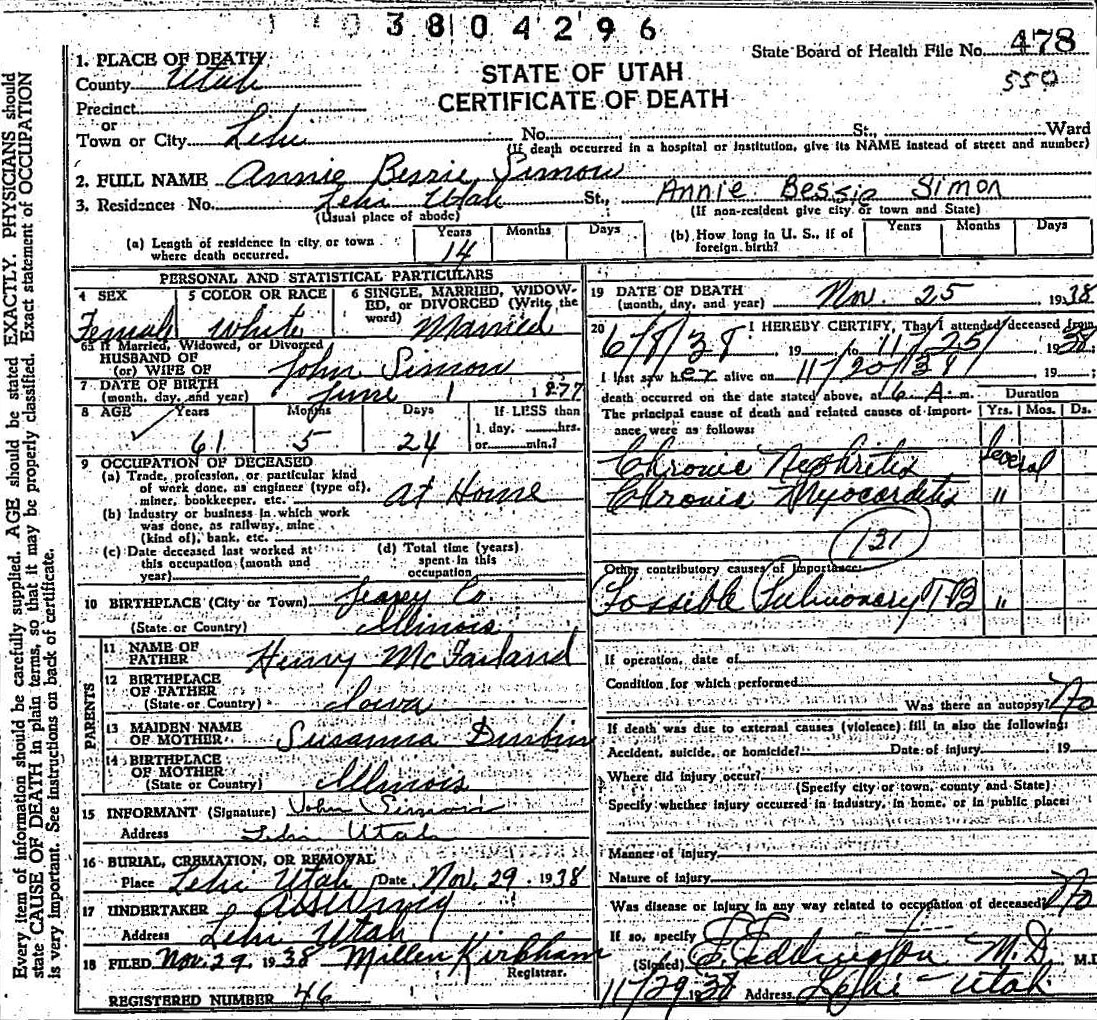 3804296
State Board of Health File No. 478
550
STATE OF UTAH
CERTIFICATE OF DEATH
1. PLACE OF DEATH
County Utah
Precinct
or
Town or City Lehi No. St., Ward
(If death occurred in a hospital or institution, give its NAME instead of street and number)
2. FULL NAME Annie Bessie Simon
Annie Bessie Simon
3. Residence: No. Lehi Utah St.,
(Usual place of abode) (If non-resident give city or town and State)
(a) Length of residence in city or town where death occurred. Years 14 Months Days
(b) How long in U. S., if of foreign birth? Years Months Days
PERSONAL AND STATISTICAL PARTICULARS
4 SEX Female
5 COLOR OR RACE White
6 SINGLE, MARRIED, WIDOWED, or DIVORCED (Write the word) Married
If Married, Widowed, or Divorced
HUSBAND OF
(or) WIFE OF John Simon
7 DATE OF BIRTH
(month, day, and year) June 1 1877
8 AGE Years 61 Months 5 Days 24 If LESS than
1 day, hrs.
or min.?
9 OCCUPATION OF DECEASED
(a) Trade, profession, or particular kind
of work done, as engineer (type of),
miner, bookkeeper, etc. At Home
(b) Industry or business in which work
was done, as railway, mine
(kind of), bank, etc.
(c) Date deceased last worked at
this occupation (month and
year)
(d) Total time (years)
spent in this
occupation
10 BIRTHPLACE (City or Town) Co
(State or Country) Illinois
PARENTS
11 NAME OF
FATHER Henry McFarland
12 BIRTHPLACE
OF FATHER
(State or Country) Iowa
13 MAIDEN NAME
OF MOTHER Susanna Durbin
14 BIRTHPLACE
OF MOTHER
(State or Country) Illinois
15 INFORMANT (Signature) John Simon
Address Lehi Utah
16 BURIAL, CREMATION, OR REMOVAL
Place Lehi Utah Date Nov. 29 1938
17 UNDERTAKER
Address Lehi Utah
18 FILED Nov. 29 1938 Kirkham
Registrar.
REGISTERED NUMBER 46
19 DATE OF DEATH
(month, day, and year) Nov. 25 1938
20 I HEREBY CERTIFY, That I attended deceased from
6/8/38 19 to 11/25/ 1938;
I last saw her alive on 11/20/38 19 ;
death occurred on the date stated above, at 6 A. m.
Duration
The principal cause of death and related causes of importance were as follows: Yrs. Mos. Ds.
Chronic Nephritis Several
Chronic Myocarditis "
131
Other contributory causes of importance:
Possible Pulmonary TB "
If operation, date of
Condition for which performed
Was there an autopsy? No
If death was due to external causes (violence) fill in also the following:
Accident, suicide, or homicide? Date of injury 19
Where did injury occur?
(Specify city or town, county and State)
Specify whether injury occurred in industry, in home, or in public place:
Manner of injury
Nature of injury
Was disease or injury in any way related to occupation of deceased? No
If so, specify
(Signed) E. Eddington M.D. M.D.
11/29 1938 Address Lehi - Utah
Every item of information should be carefully supplied. AGE should be stated EXACTLY. PHYSICIANS should
state CAUSE OF DEATH in plain terms, so that it may be properly classified. Exact statement of OCCUPATION
is very important. See instructions on back of certificate.